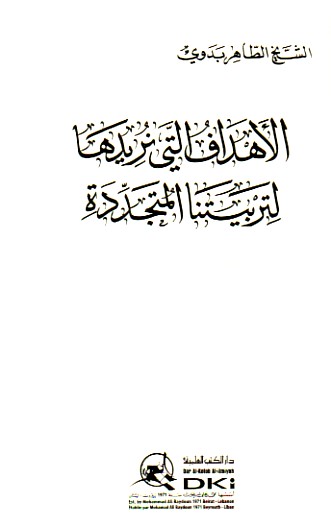 الشيخ الطاهر بدوي
الأهداف التي نريدها
لتربيتنا المتجددة
دار الكتب العلمية
Dar Al-Kotob Al-ilmiyah
DKi
Est. by Mohammad Ali Baydoun 1971 Beirut - Lebanon
Établie par Mohamad Ali Baydoun 1971 Beyrouth - Liban